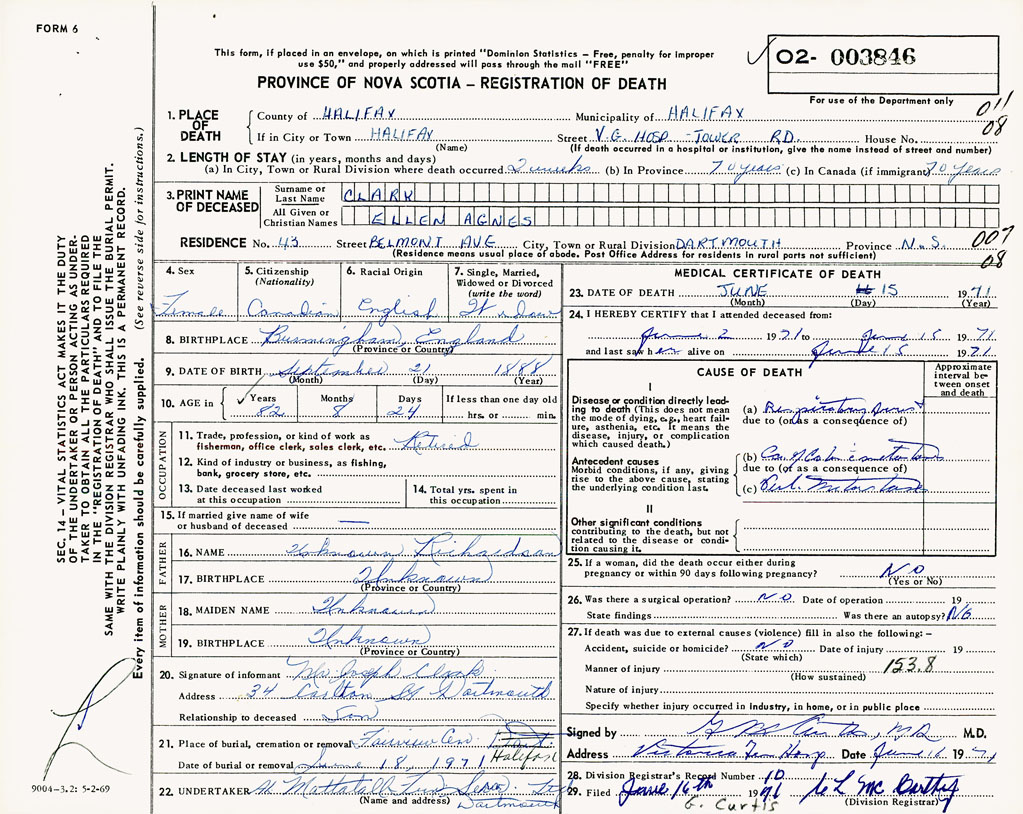 FORM 6
This form, if placed in an envelope, on which is printed "Dominion Statistics – Free, penalty for improper
use $50," and properly addressed will pass through the mail "FREE"
O2- 003846
For use of the Department only
PROVINCE OF NOVA SCOTIA – REGISTRATION OF DEATH
011
08
1. PLACE OF DEATH
County of HALIFAX Municipality of HALIFAX
If in City or Town HALIFAX Street V.G. HOSP - TOWER RD. House No.
(Name) (If death occurred in a hospital or institution, give the name instead of street and number)
2. LENGTH OF STAY (in years, months and days)
(a) In City, Town or Rural Division where death occurred 2 weeks (b) In Province 70 years (c) In Canada (if immigrant) 70 years
3. PRINT NAME OF DECEASED
Surname or Last Name CLARK
All Given or Christian Names ELLEN AGNES
RESIDENCE No. 43 Street BELMONT AVE City, Town or Rural Division DARTMOUTH Province N.S.
(Residence means usual place of abode. Post Office Address for residents in rural parts not sufficient)
007
08
4. Sex
Female
5. Citizenship
(Nationality)
Canadian
6. Racial Origin
English
7. Single, Married,
Widowed or Divorced
(write the word)
Widow
8. BIRTHPLACE Burmingham, England
(Province or Country)
9. DATE OF BIRTH September 21 1888
(Month) (Day) (Year)
10. AGE in
Years Months Days If less than one day old
82 8 24 hrs. or min.
OCCUPATION
11. Trade, profession, or kind of work as
fisherman, office clerk, sales clerk, etc. Retired
12. Kind of industry or business, as fishing,
bank, grocery store, etc.
13. Date deceased last worked
at this occupation
14. Total yrs. spent in
this occupation
15. If married give name of wife
or husband of deceased —
FATHER
16. NAME Unknown Richardson
17. BIRTHPLACE Unknown
(Province or Country)
MOTHER
18. MAIDEN NAME Unknown
19. BIRTHPLACE Unknown
(Province or Country)
20. Signature of informant Joseph Clark
Address 34 Carlton St Dartmouth
Relationship to deceased Son
21. Place of burial, cremation or removal Fairview Cem. Halifax
Date of burial or removal June 18, 1971
22. UNDERTAKER Mattatall
(Name and address) Dartmouth
MEDICAL CERTIFICATE OF DEATH
23. DATE OF DEATH JUNE 15 1971
(Month) (Day) (Year)
24. I HEREBY CERTIFY that I attended deceased from:
June 2 1971 to June 15 1971
and last saw her alive on June 15 1971
CAUSE OF DEATH
Approximate
interval be-
tween onset
and death
I
Disease or condition directly lead-
ing to death (This does not mean
the mode of dying, e.g., heart fail-
ure, asthenia, etc. It means the
disease, injury, or complication
which caused death.)
(a) Respiratory Arrest
due to (or as a consequence of)
Antecedent causes
Morbid conditions, if any, giving
rise to the above cause, stating
the underlying condition last.
(b) Ca of Colon
due to (or as a consequence of)
(c)
II
Other significant conditions
contributing to the death, but not
related to the disease or condi-
tion causing it.
25. If a woman, did the death occur either during
pregnancy or within 90 days following pregnancy? NO
(Yes or No)
26. Was there a surgical operation? NO Date of operation 19
State findings Was there an autopsy? NO
27. If death was due to external causes (violence) fill in also the following: –
Accident, suicide or homicide? NO Date of injury 19
(State which)
Manner of injury 153.8
(How sustained)
Nature of injury
Specify whether injury occurred in industry, in home, or in public place
Signed by M.D.
Address Victoria Gen Hosp Date June 16 1971
28. Division Registrar's Record Number 10
29. Filed June 16th 1971
G. Curtis
(Division Registrar)
SEC. 14 – VITAL STATISTICS ACT MAKES IT THE DUTY
OF THE UNDERTAKER OR PERSON ACTING AS UNDER-
TAKER TO OBTAIN ALL THE PARTICULARS REQUIRED
IN THE "REGISTRATION OF DEATH" AND TO FILE THE
SAME WITH THE DIVISION REGISTRAR WHO SHALL ISSUE THE BURIAL PERMIT.
WRITE PLAINLY WITH UNFADING INK. THIS IS A PERMANENT RECORD.
Every item of information should be carefully supplied. (See reverse side for instructions.)
9004-3.2: 5-2-69